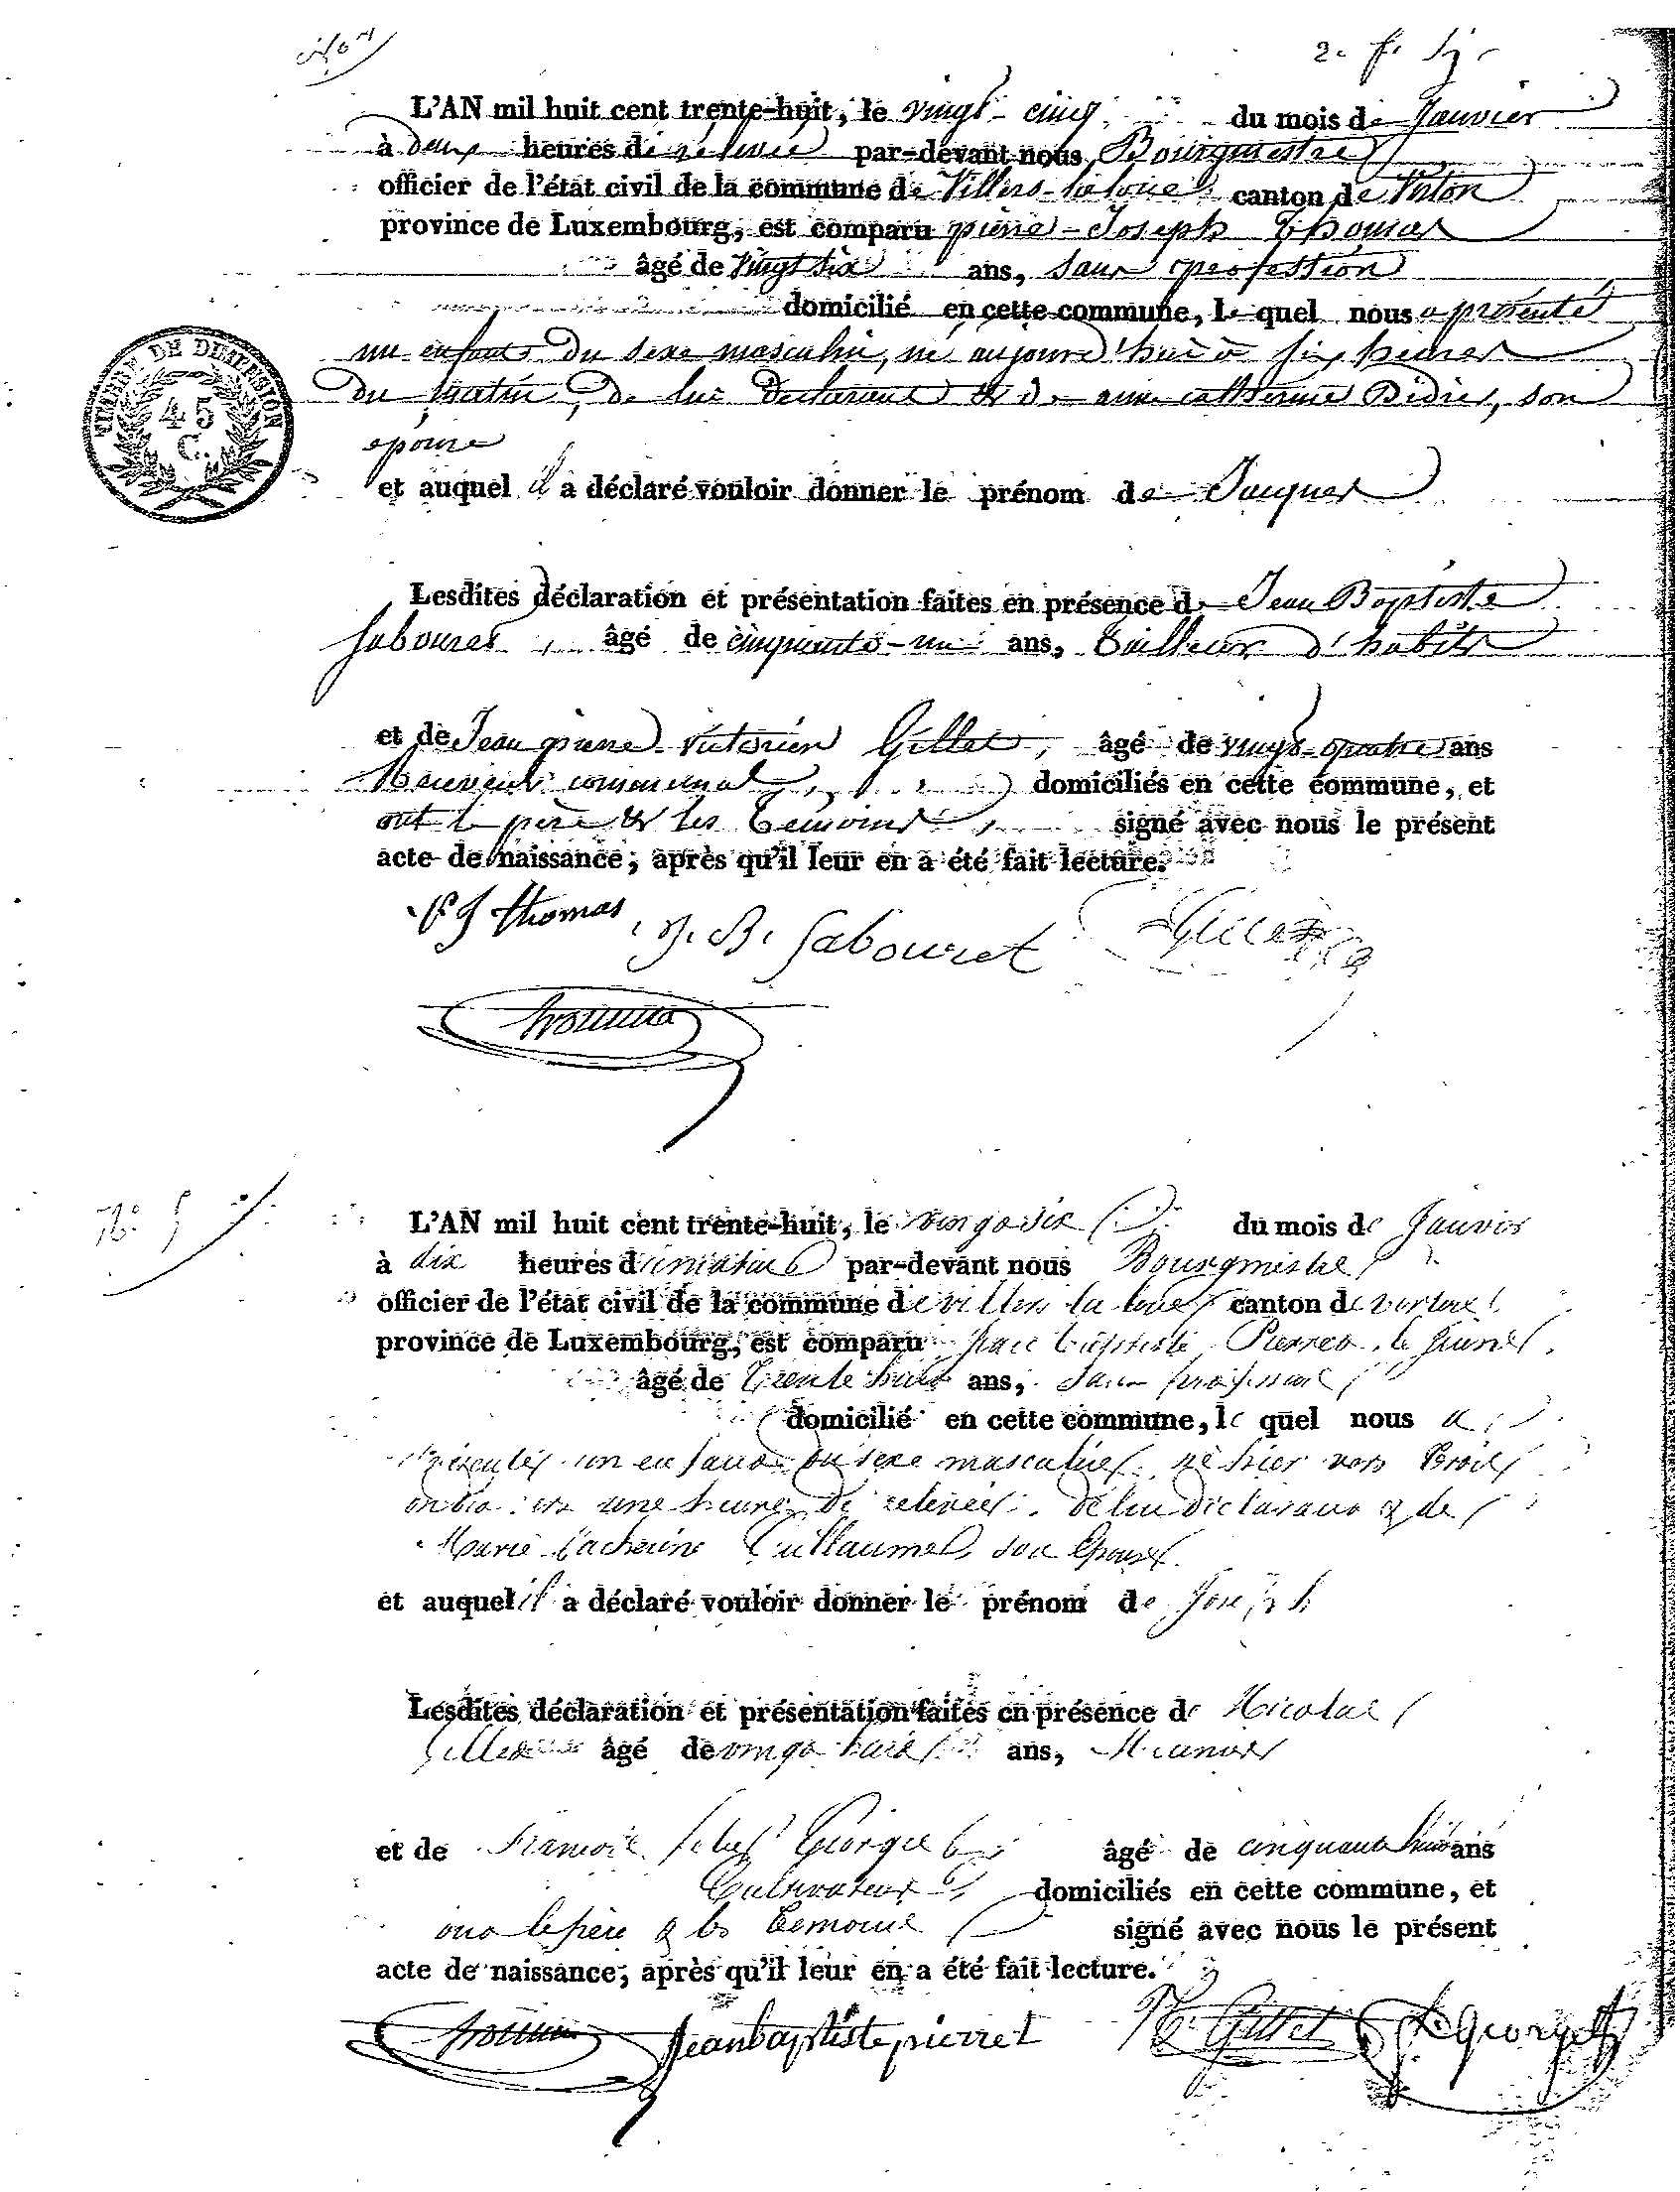 2e f. Sj.
L'AN mil huit cent trente-huit, le vingt-cinq du mois de Janvier
à deux heures de relevée par-devant nous Bourgmestre
officier de l'état civil de la commune de Villers-laloue canton de Virton
province de Luxembourg, est comparu pierre-Joseph Thomas
âgé de vingt six ans, sans profession
domicilié en cette commune, le quel nous a présenté
un enfant du sexe masculin, né aujourd'hui à six heures
du matin, de lui déclarant & de anne catherine Didier, son
épouse
et auquel il a déclaré vouloir donner le prénom de Jacques
TIMBRE DE DIMENSION
45
C.
Lesdites déclaration et présentation faites en présence de Jean Baptiste
Sabouret, âgé de cinquante-un ans, tailleur d'habits
et de Jean pierre victorien Gillet, âgé de vingt-quatre ans
Receveur communal, domiciliés en cette commune, et
ont le père & les témoins signé avec nous le présent
acte de naissance, après qu'il leur en a été fait lecture.
P J thomas J. B. Sabouret Gillet
N° 5
L'AN mil huit cent trente-huit, le vingt six du mois de Janvier
à dix heures du matin par-devant nous Bourgmestre
officier de l'état civil de la commune de villers la loue canton de virton
province de Luxembourg, est comparu Jean baptiste Pierret le Jeune
âgé de trente huit ans, sans profession
domicilié en cette commune, le quel nous a
présenté un enfant du sexe masculin, né hier vers
une heure de relevée, de lui déclarant & de
Marie Catherine Guillaume, son épouse
et auquel il a déclaré vouloir donner le prénom de Joseph
Lesdites déclaration et présentation faites en présence de Nicolas
Gillet âgé de vingt huit ans, Meunier
et de François Georges âgé de cinquante huit ans
Cultivateur domiciliés en cette commune, et
ont le père & les témoins signé avec nous le présent
acte de naissance, après qu'il leur en a été fait lecture.
Jean baptiste pierret N. Gillet f. georges